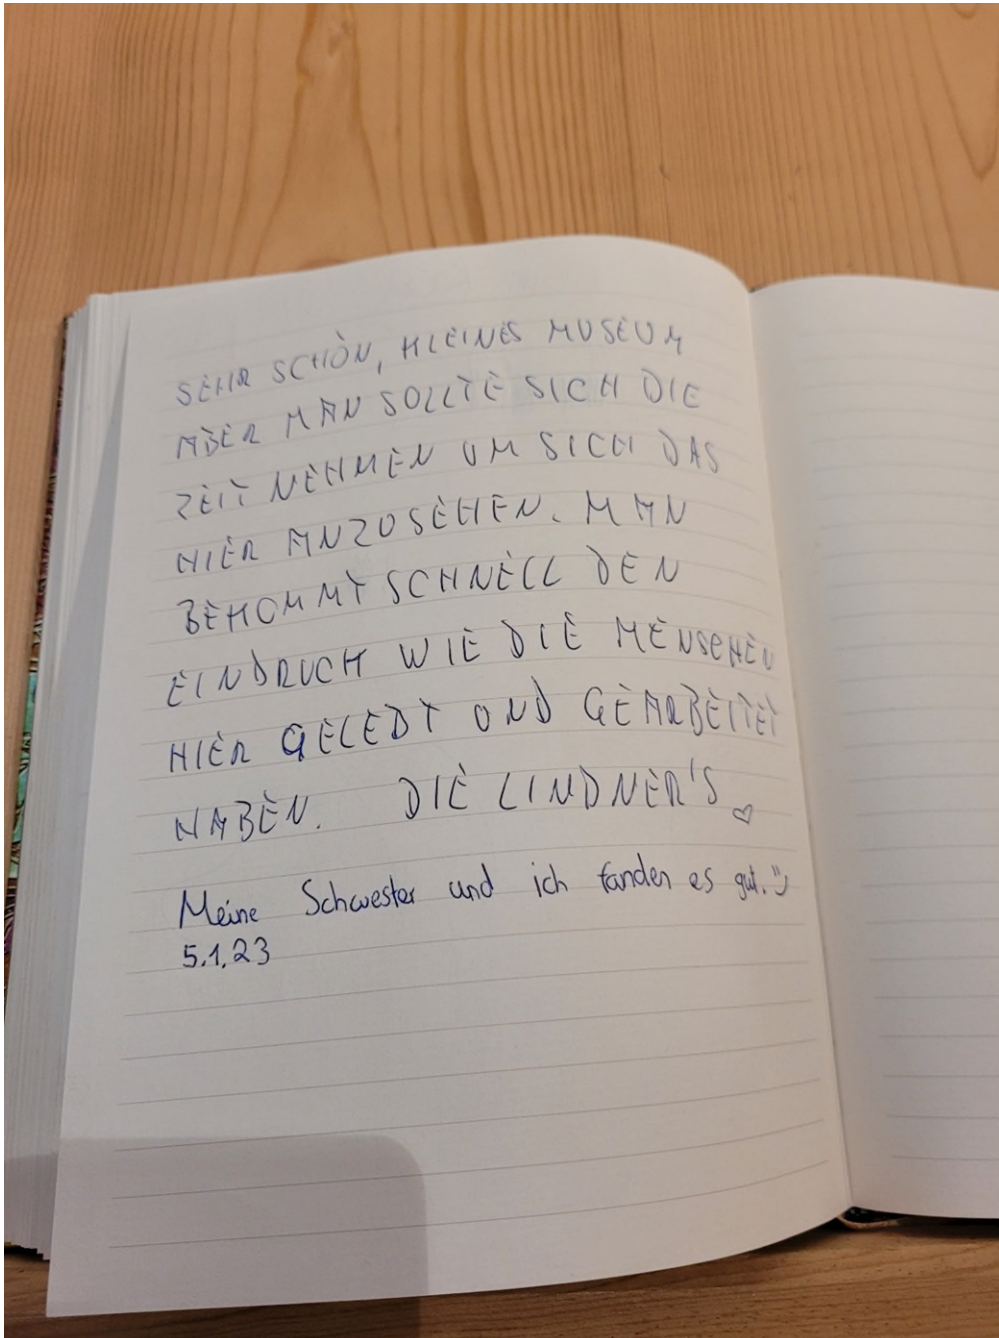 SEHR SCHÖN, KLEINES MUSEUM
ABER MAN SOLLTE SICH DIE
ZEIT NEHMEN UM SICH DAS
HIER ANZUSEHEN. MAN
BEKOMMT SCHNELL DEN
EINDRUCK WIE DIE MENSCHEN
HIER GELEBT UND GEARBEITET
HABEN. DIE LINDNER'S ♡
Meine Schwester und ich fanden es gut. :)
5.1.23